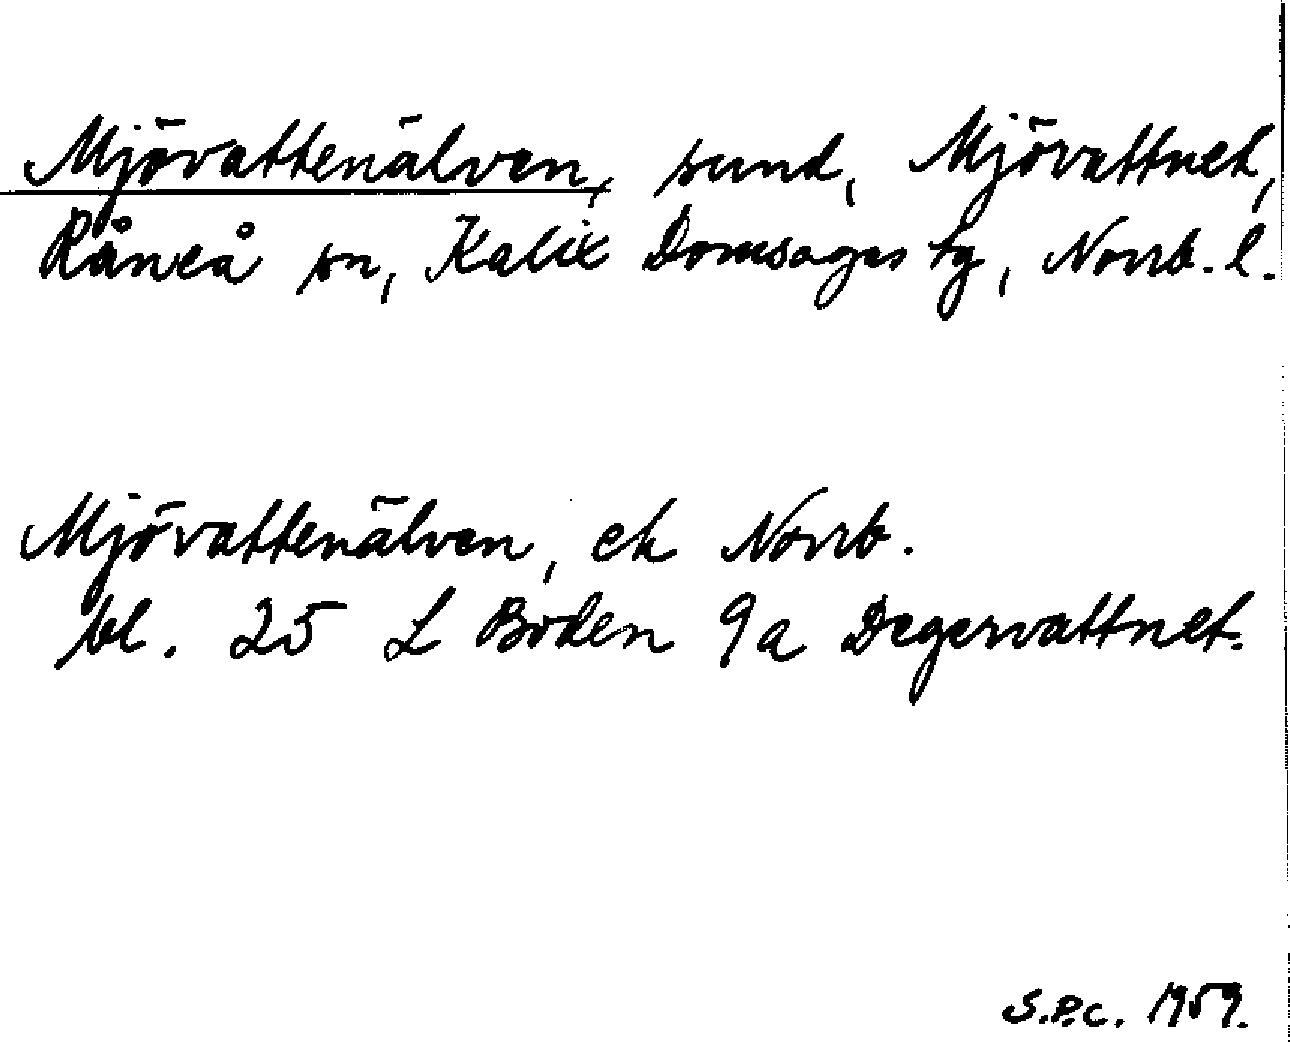 Mjövattenälven, sund, Mjövattnet,
Råneå sn, Kalix Domsagas tg, Norrb. l.
Mjövattenälven, ek Norrb.
bl. 25 L Boden 9a Degervattnet.
S.P.C. 1959.